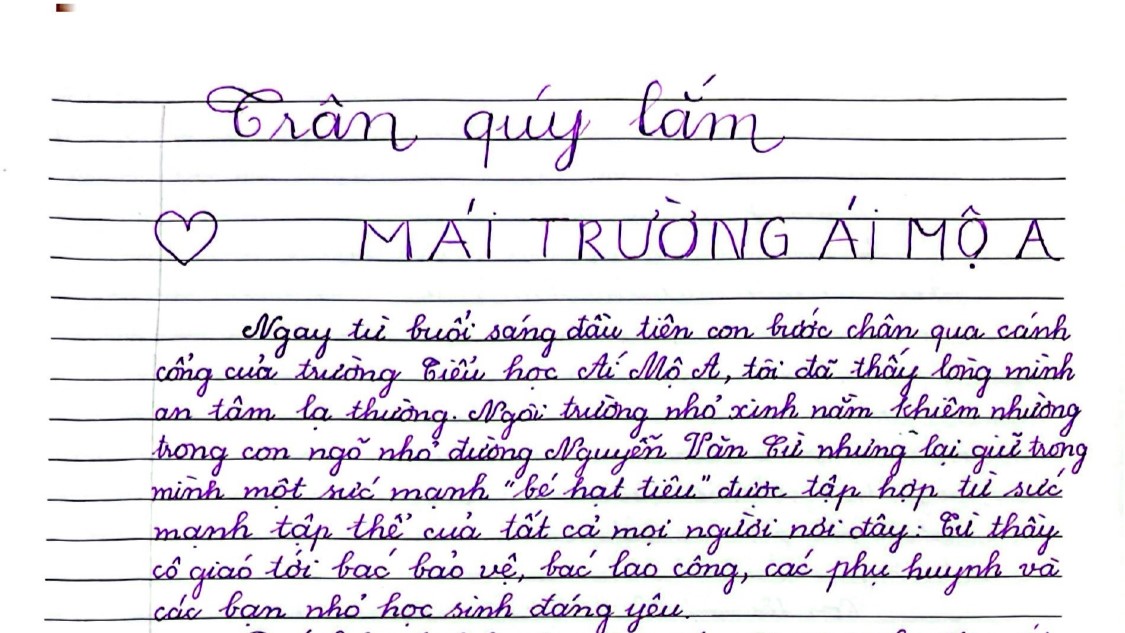 Trân quý lắm
MÁI TRƯỜNG ÁI MỘ A
Ngay từ buổi sáng đầu tiên con bước chân qua cánh
cổng của trường Tiểu học Ái Mộ A, tôi đã thấy lòng mình
an tâm lạ thường. Ngôi trường nhỏ xinh nằm khiêm nhường
trong con ngõ nhỏ đường Nguyễn Văn Cừ nhưng lại giữ trong
mình một sức mạnh "bé hạt tiêu" được tập hợp từ sức
mạnh tập thể của tất cả mọi người nơi đây: Từ thầy
cô giáo tới bác bảo vệ, bác lao công, các phụ huynh và
các bạn nhỏ học sinh đáng yêu.